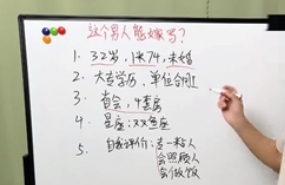 这个男人能嫁吗?
1. 32岁, 1米74, 未婚
2. 大专学历、单位合同工
3. 省会, 4套房
4. 星座: 双鱼座
5. 自我评价: 专一粘人
会照顾人
会做饭